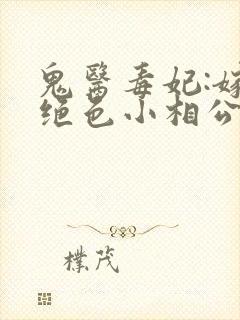 鬼醫毒妃:嫁
绝色小相公
樸茂